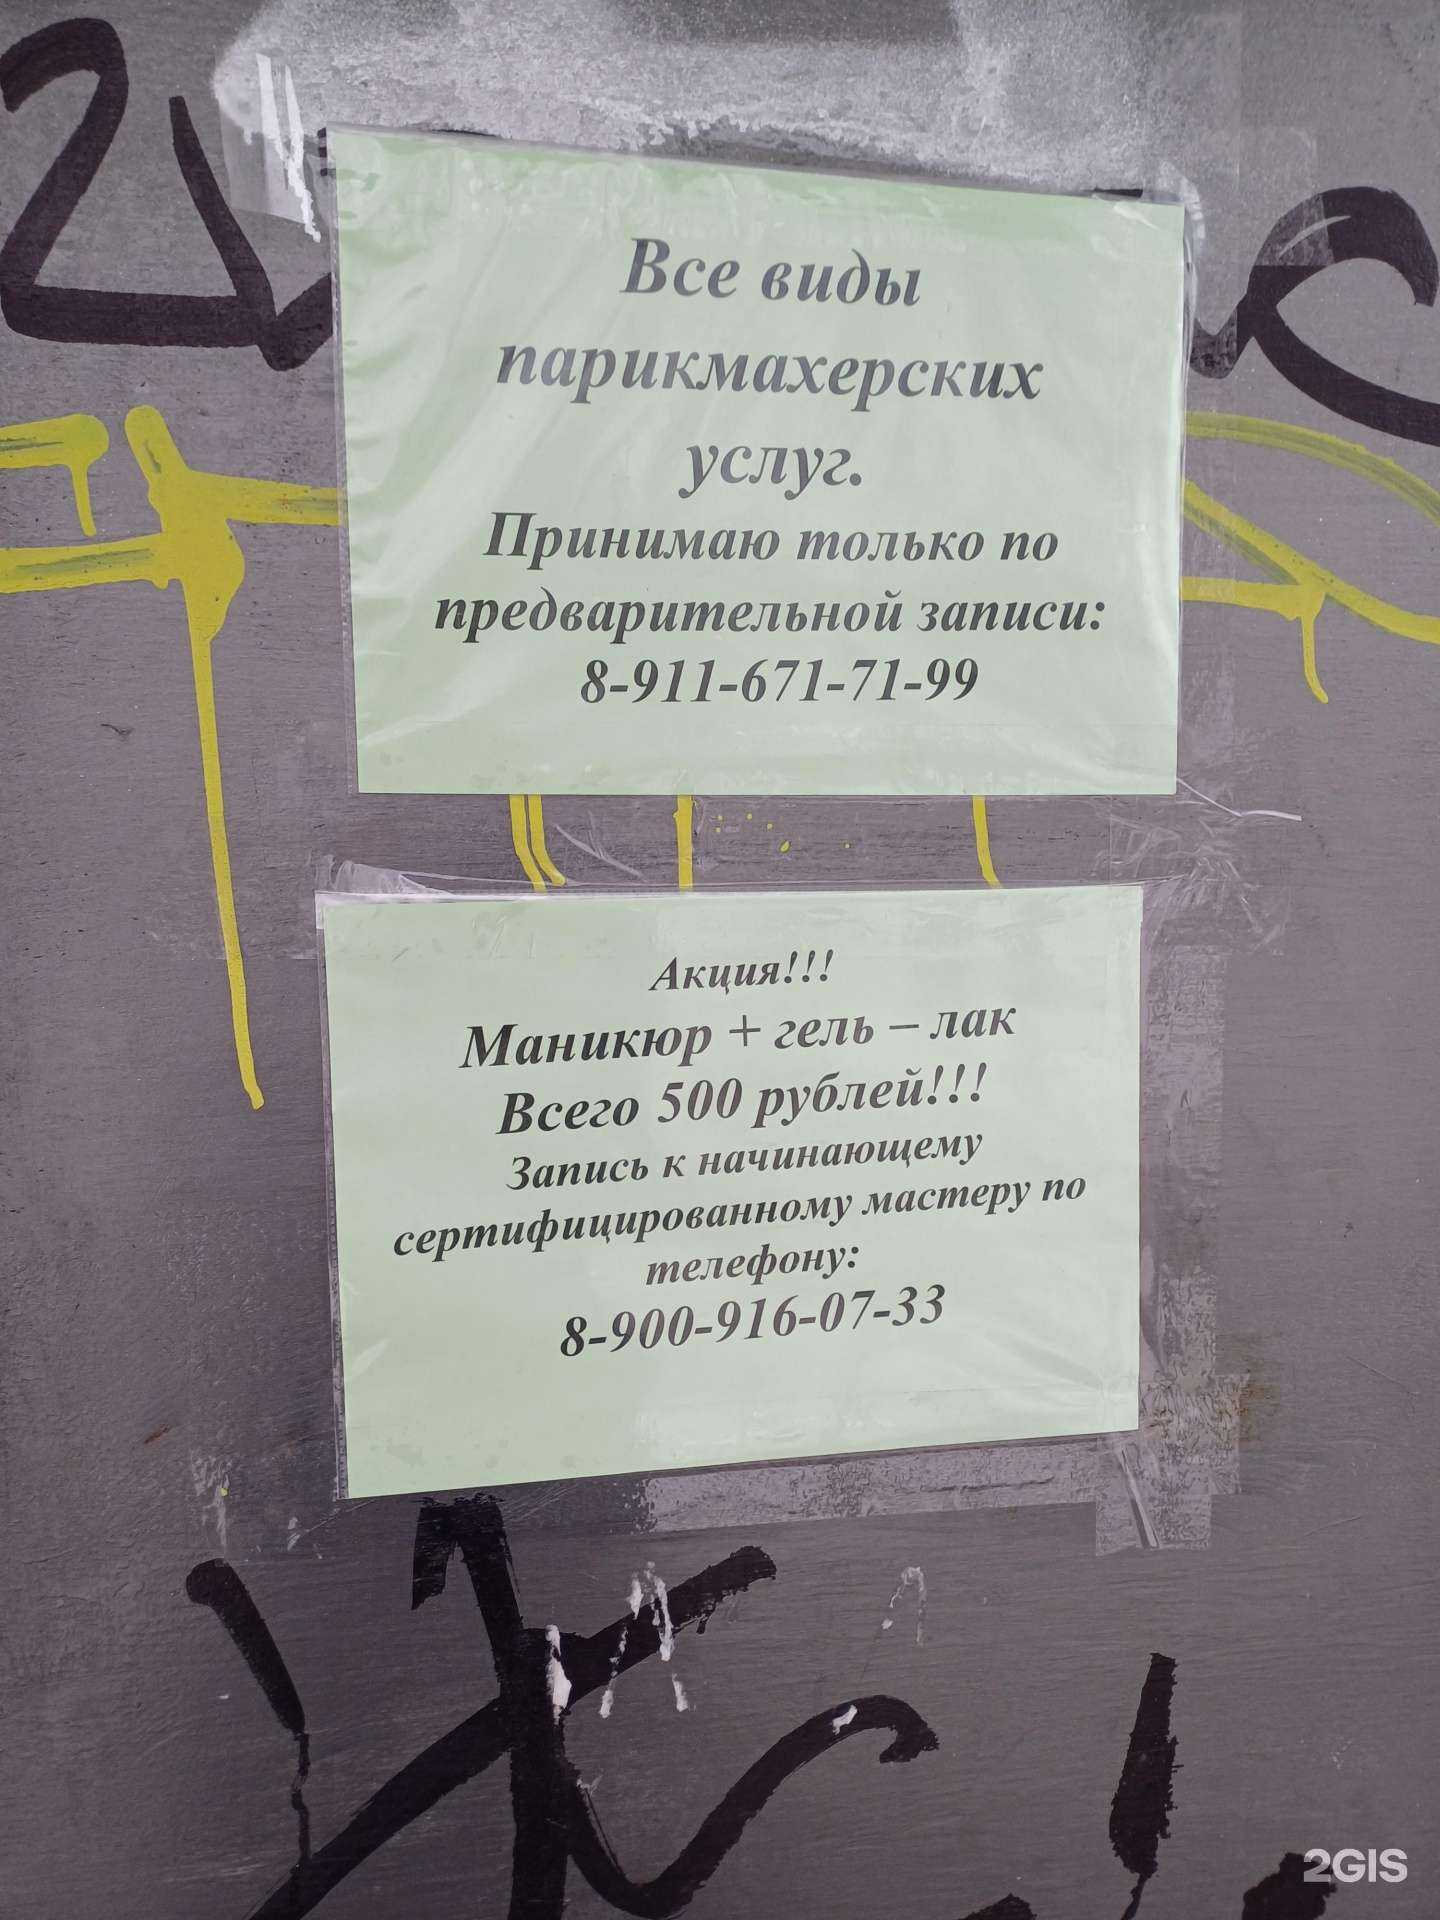 Все виды
парикмахерских
услуг.
Принимаю только по
предварительной записи:
8-911-671-71-99
Акция!!!
Маникюр + гель – лак
Всего 500 рублей!!!
Запись к начинающему
сертифицированному мастеру по
телефону:
8-900-916-07-33
2GIS